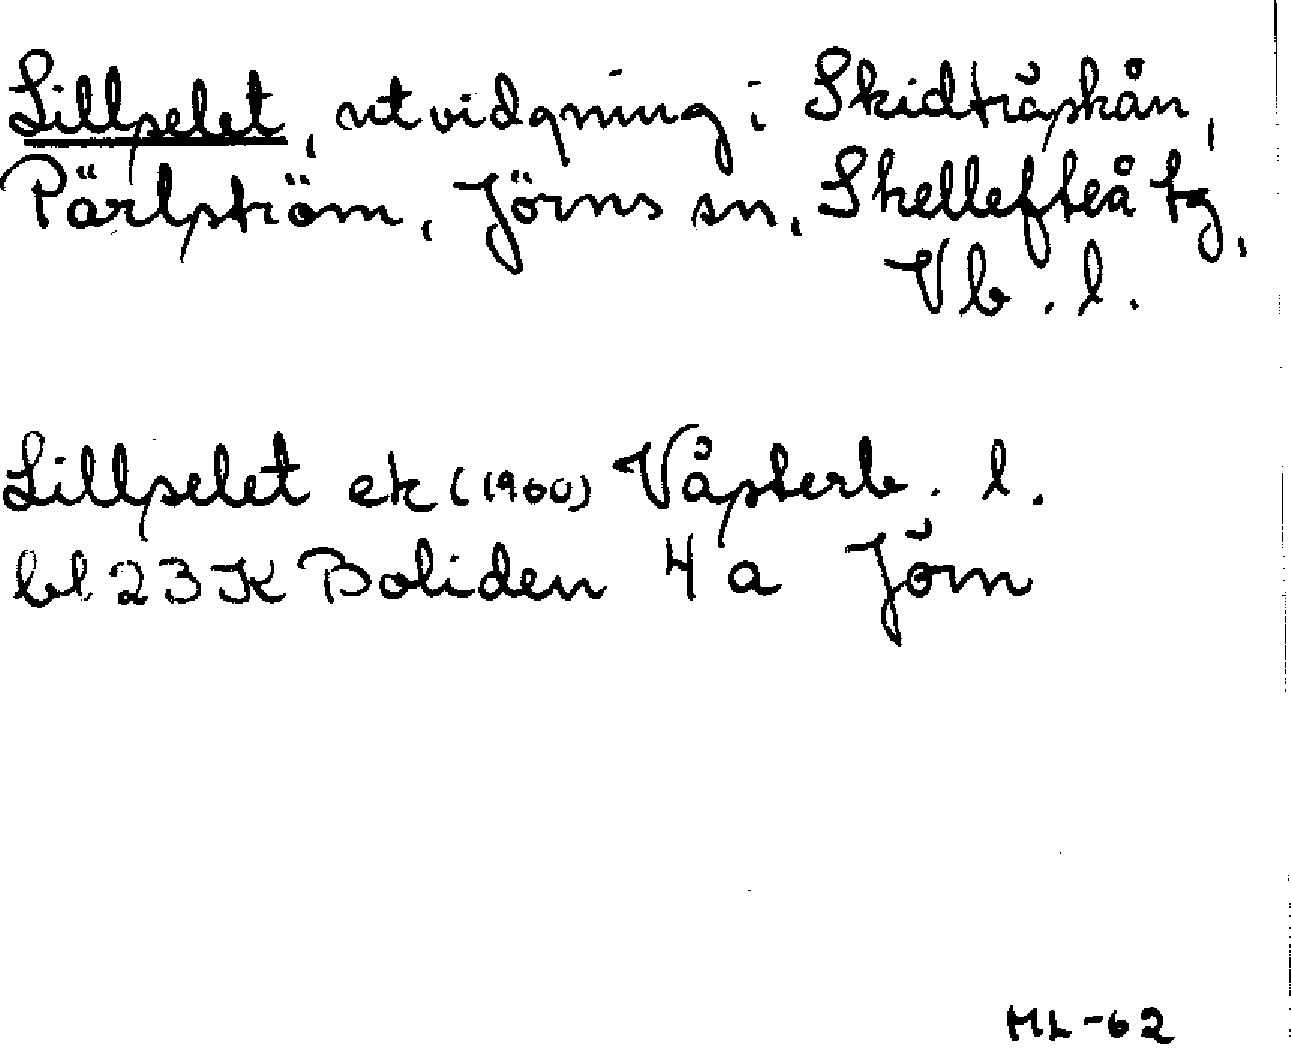 Lillselet, utvidgning i Skidträskån,
Pärlström, Jörns sn, Skellefteå tg,
Vb. l.
Lillselet ek (1960) Västerb. l.
bl 23 K Boliden 4 a Jörn
ML-62